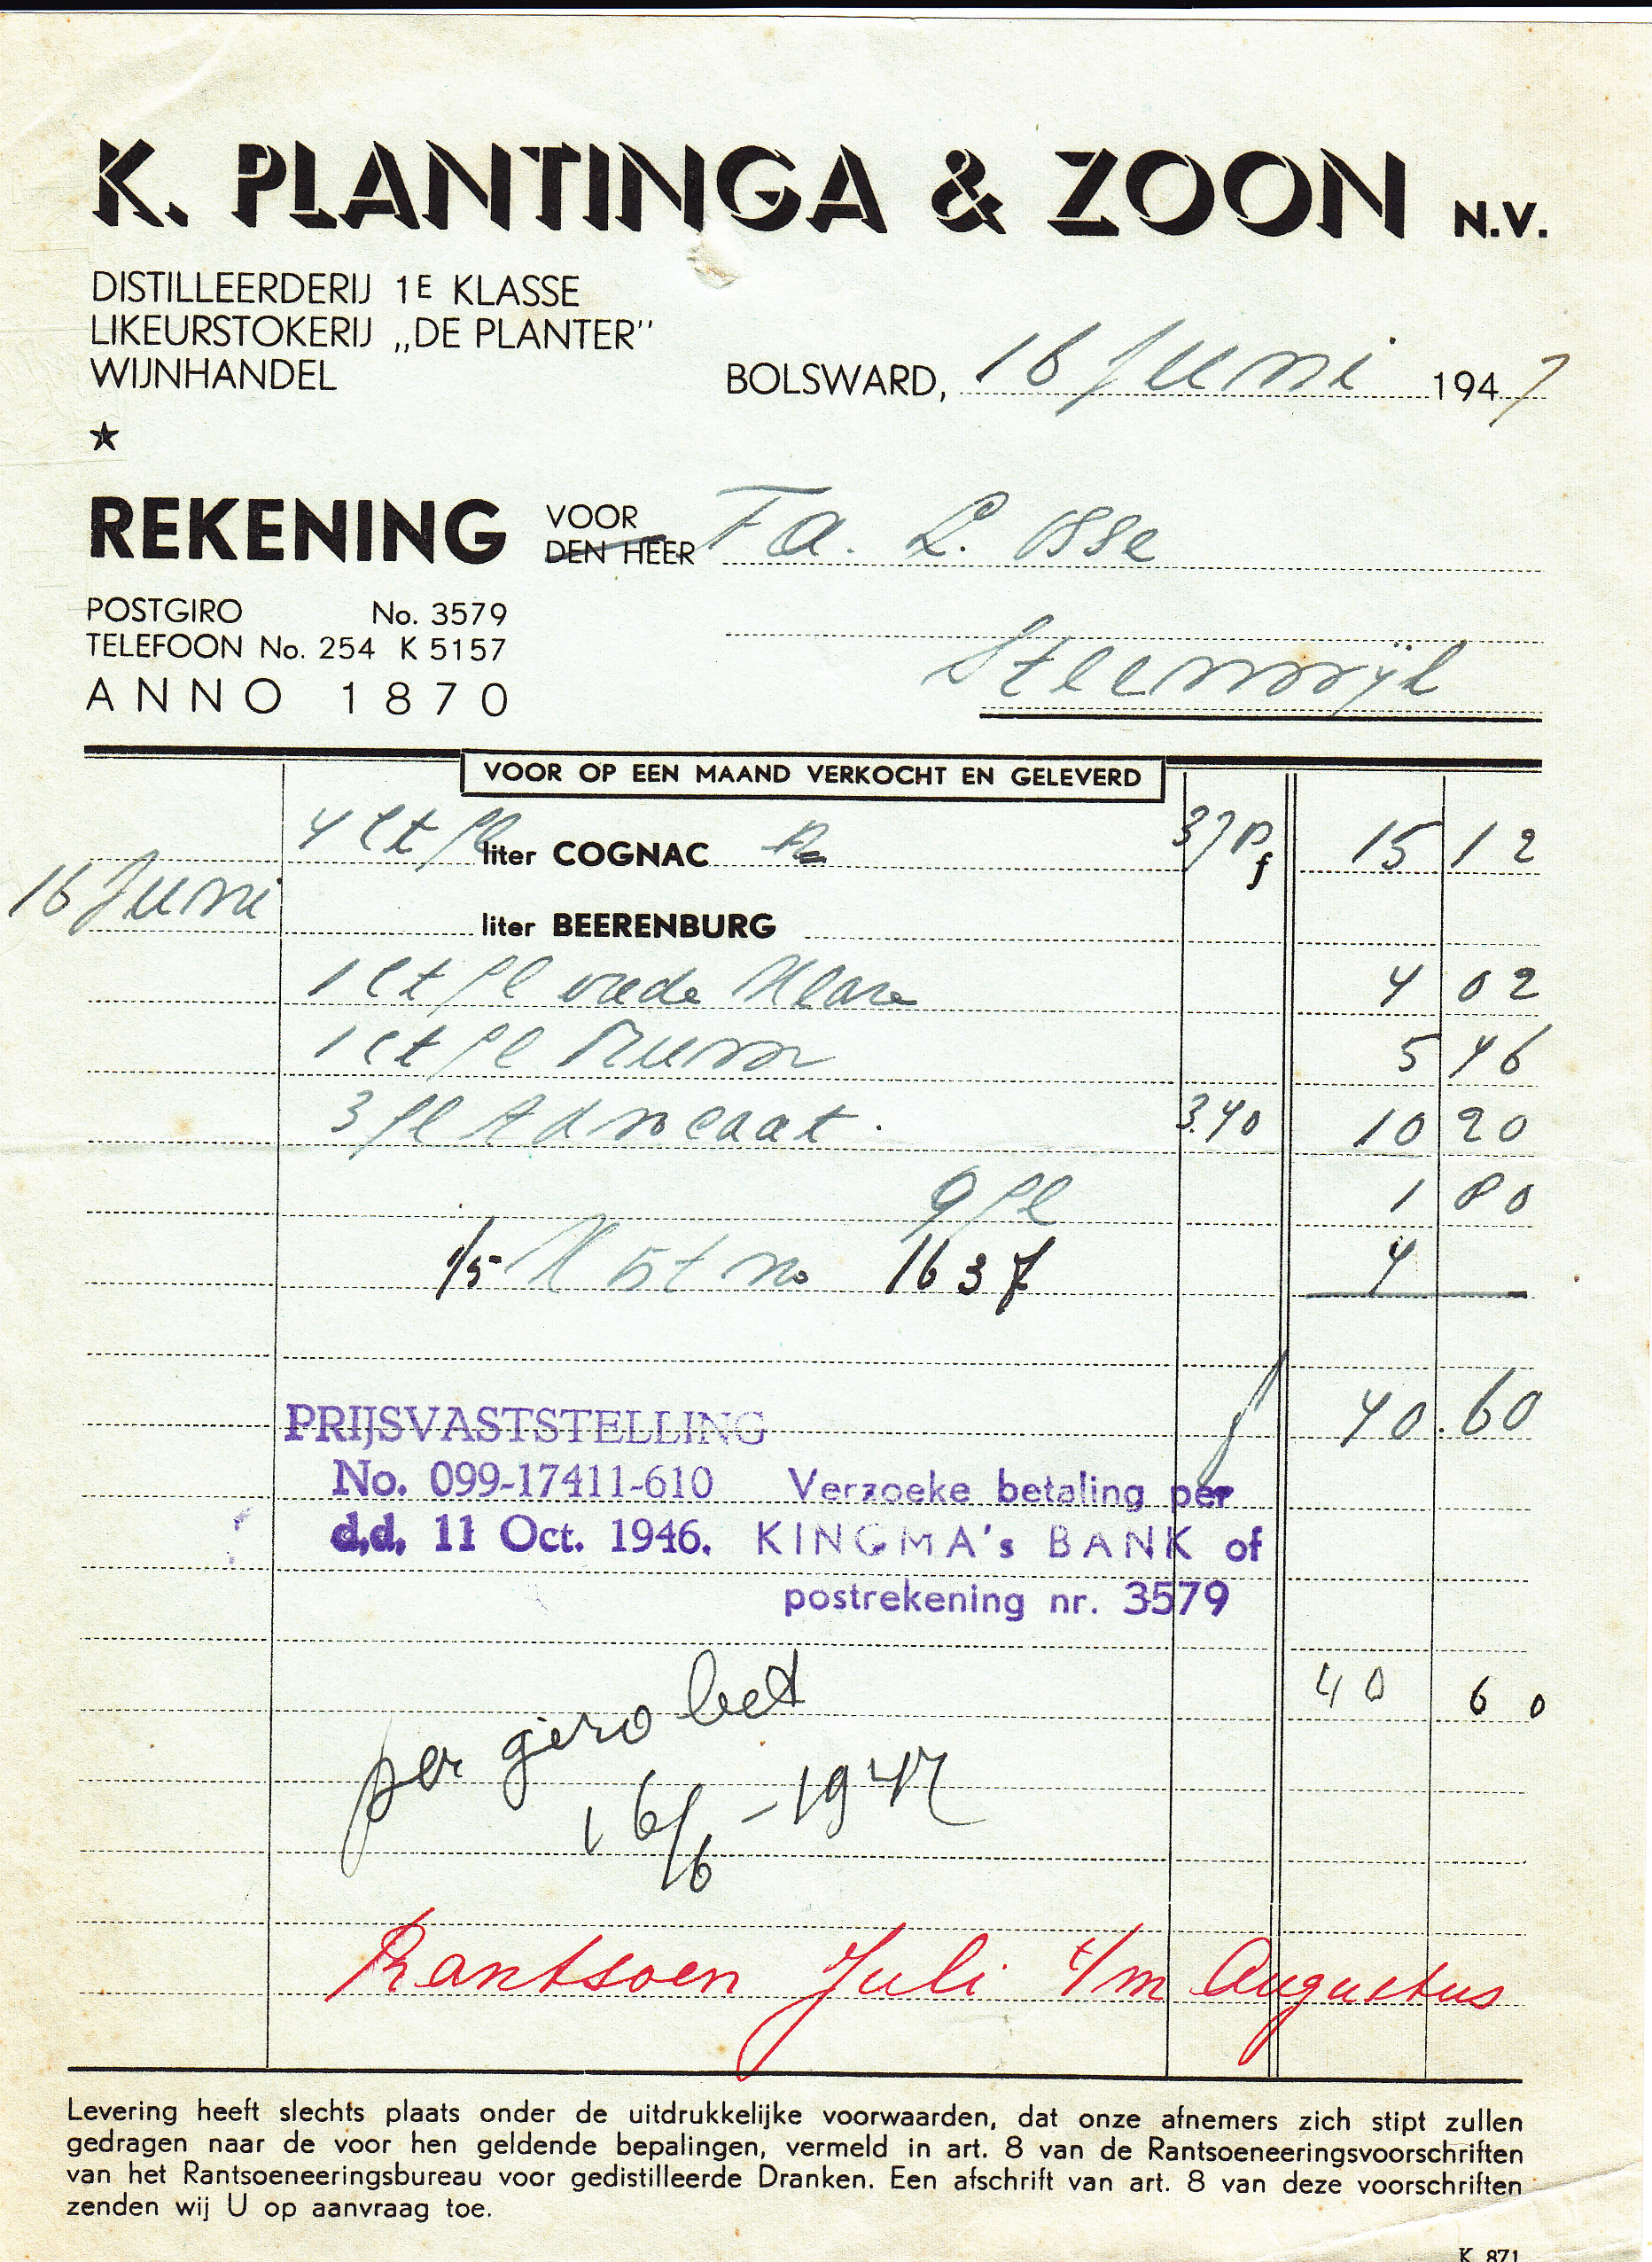 K. PLANTINGA & ZOON N.V.
DISTILLEERDERIJ 1E KLASSE
LIKEURSTOKERIJ „DE PLANTER”
WIJNHANDEL
BOLSWARD, 16 Juni 1947
★
REKENING VOOR DEN HEER Fa. L. Osse
POSTGIRO No. 3579
TELEFOON No. 254 K 5157
Steenwijk
ANNO 1870
VOOR OP EEN MAAND VERKOCHT EN GELEVERD
4 lt fl liter COGNAC 378 f 15 12
16 Juni
liter BEERENBURG
1 lt fl oude Klare 4 02
1 lt fl Rum 5 46
3 fl Advocaat. 3.40 10 20
9 fl 1 80
1/5 Kist no 1637 4
f 40.60
PRIJSVASTSTELLING
No. 099-17411-610
d.d. 11 Oct. 1946.
Verzoeke betaling per
KINGMA's BANK of
postrekening nr. 3579
40 60
per giro bet
16/6 - 1947
Rantsoen Juli t/m Augustus
Levering heeft slechts plaats onder de uitdrukkelijke voorwaarden, dat onze afnemers zich stipt zullen
gedragen naar de voor hen geldende bepalingen, vermeld in art. 8 van de Rantsoeneeringsvoorschriften
van het Rantsoeneeringsbureau voor gedistilleerde Dranken. Een afschrift van art. 8 van deze voorschriften
zenden wij U op aanvraag toe.
K 871